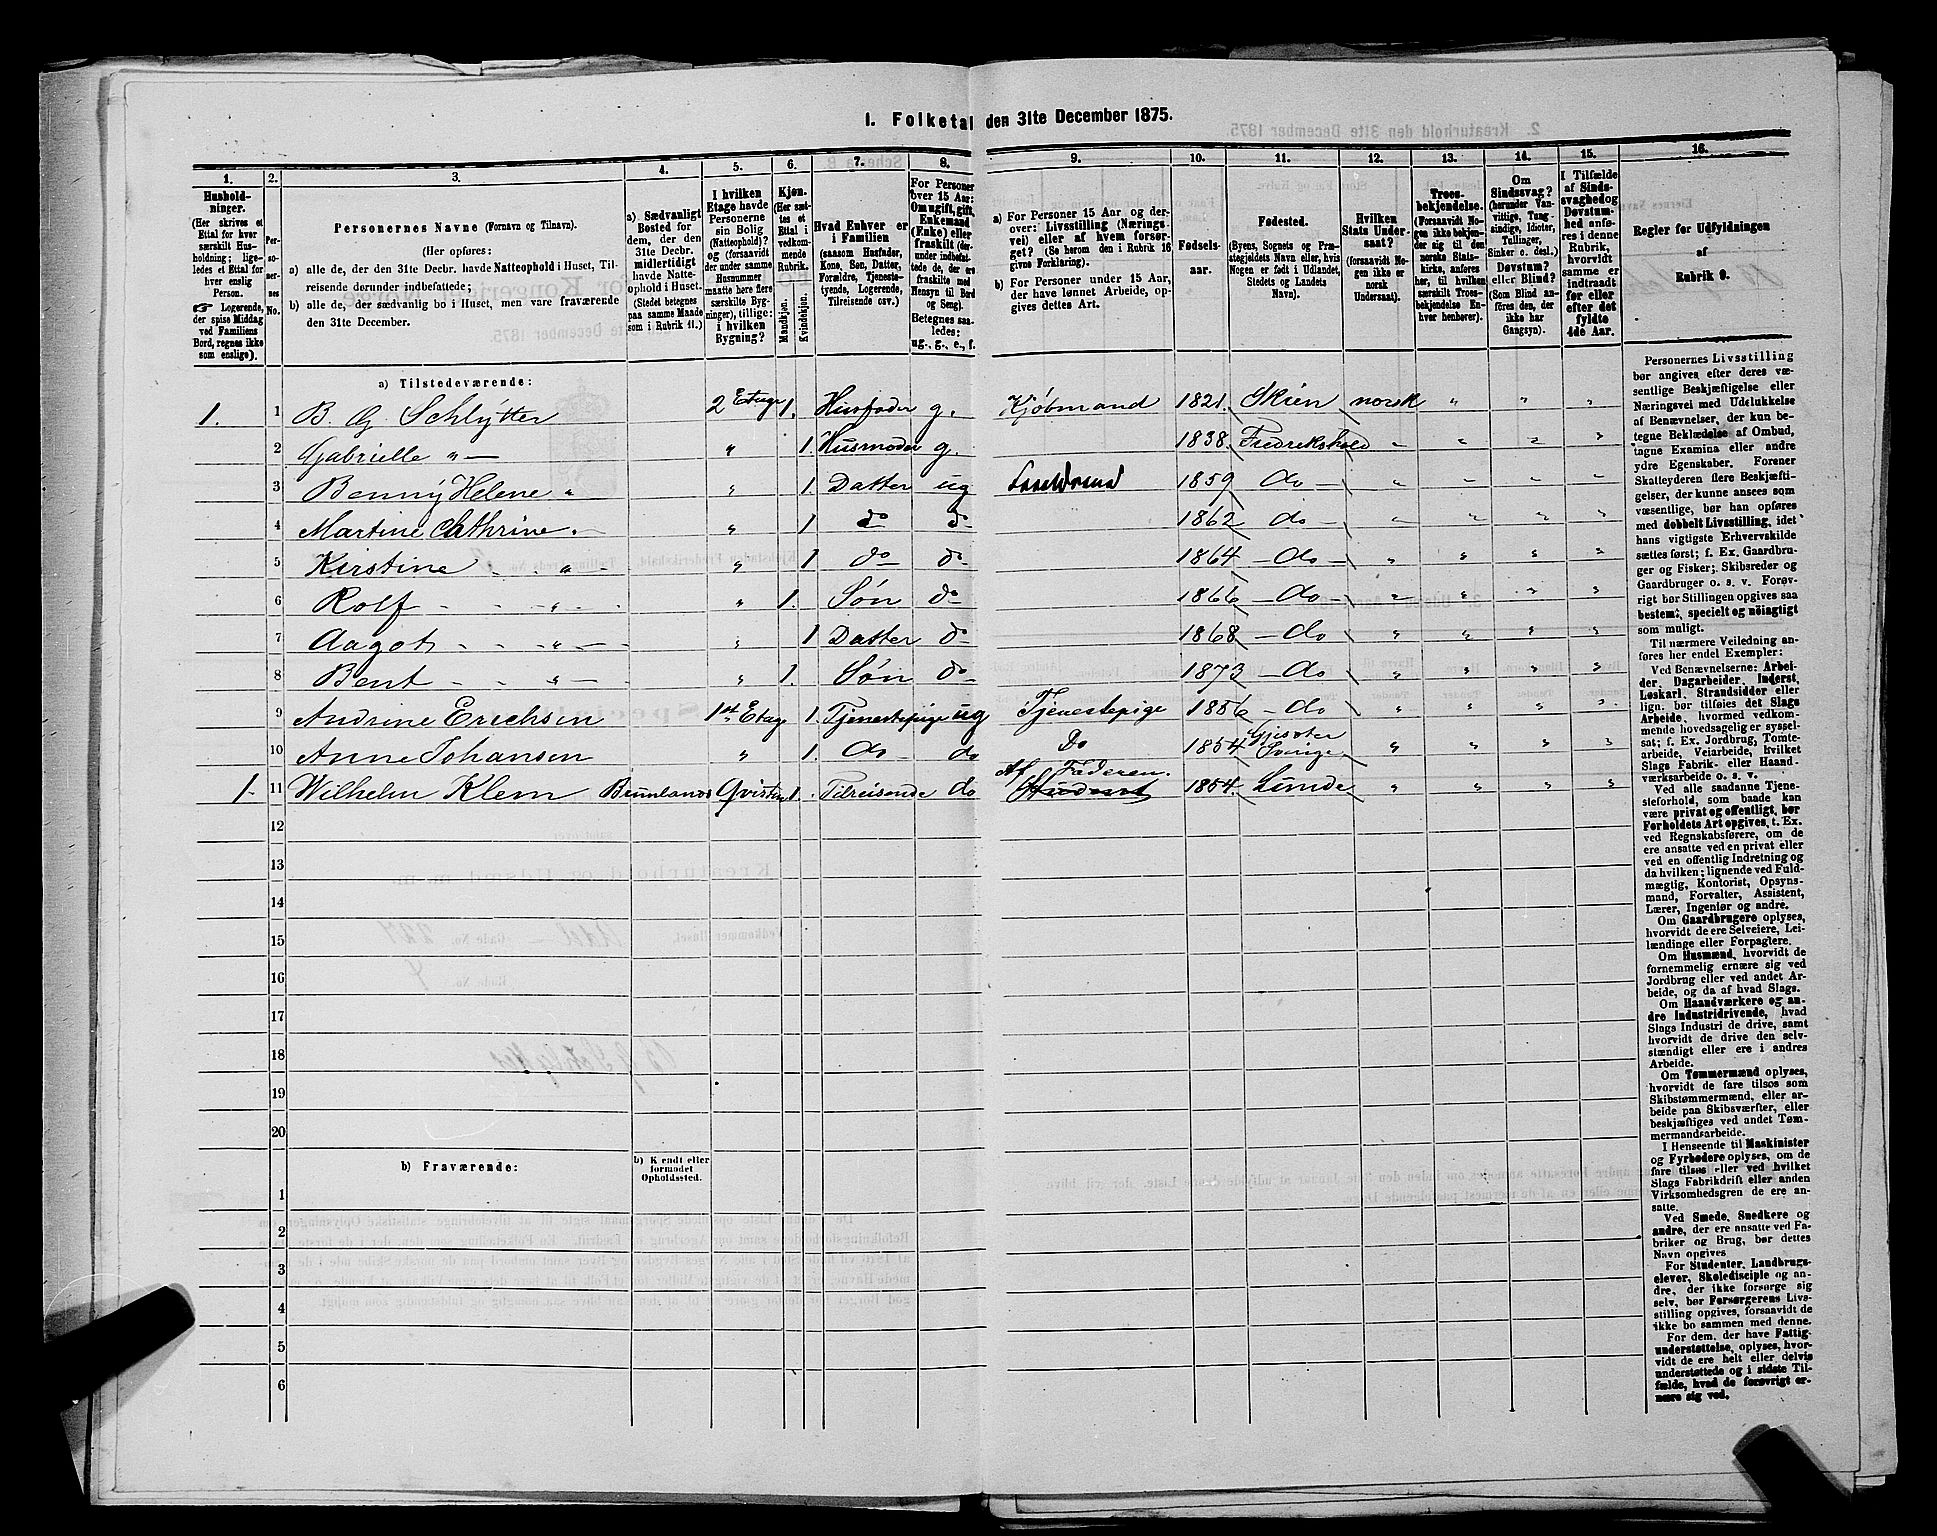 1. Folketal den 31te December 1875.
1. 2. 3. 4. 5. 6. 7. 8. 9. 10. 11. 12. 13. 14. 15. 16.
Husholdninger.
(Her skrives et
Ettal for hver
særskilt Husholdning;
ligeledes
et Ettal for
hver enslig
Person.
Logerende,
der spise Middag
ved Familiens
Bord, regnes ikke
som enslige).
Personernes No.
Personernes Navne (Fornavn og Tilnavn).
(Her opføres:
a) alle de, der den 31te Decbr. havde Natteophold i Huset, Tilreisende
derunder indbefattede;
b) alle de, der sædvanlig bo i Huset, men vare fraværende
den 31te December.
a) Sædvanligt
Bosted for
dem, der den
31te Decbr.
midlertidigt
havde Natteophold
i Huset.
(Stedet betegnes
paa samme Maade
som i Rubrik 11.)
I hvilken
Etage havde
Personerne
sin Bolig
(Natteophold)?
og (forsaavidt
der under samme
Husnummer
maatte høre flere
særskilte Bygninger),
tillige:
i hvilken
Bygning?
Kjøn.
(Her sættes
et
Ettal i
vedkommende
Rubrik.
Mandkjøn.
Kvindekjøn.
Hvad Enhver er
i Familien
(saasom Husfader,
Kone, Søn, Datter,
Forældre, Tjenestetyende,
Logerende,
Tilreisende osv.)
For Personer
over 15 Aar:
Om ugift, gift,
Enkemand
(Enke) eller
fraskilt (derunder
indbefattede
de, der ere
fraskilte med
Hensyn til Bord
og Seng).
Betegnes saaledes:
ug., g., e., f.
a) For Personer 15 Aar og derover:
Livsstilling (Næringsvei)
eller af hvem forsørget?
(Se herom den i Rubrik 16
givne Forklaring).
b) For Personer under 15 Aar,
der have lønnet Arbeide, opgives
dettes Art.
Fødselsaar.
Fødested.
(Byens, Sognets og Præstegjeldets
Navn eller, hvis
Nogen er født i Udlandet,
Stedets og Landets
Navn).
Hvilken
Stats Undersaat?
(forsaavidt Nogen
ikke er
norsk
Undersaat).
Troesbekjendelse.
(Forsaavidt Nogen
ikke bekjender
sig til den
norske Statskirke,
anføres
her, til hvilken
særskilt Troesbekjendelse
Enhver
henhører).
Om
Sindssvag?
(herunder Vanvittige,
Tungsindige,
Idioter,
Tullinger,
Sinker o. desl.)
Døvstum?
eller Blind?
(Som Blind anføres
den, der
ikke har
Gangsyn).
I Tilfælde
af Sindssvaghed
og
Døvstumhed
anføres
i denne
Rubrik,
hvorvidt
samme er
indtraadt
før eller
efter det
fyldte
4de Aar.
Regler for Udfyldningen
af
Rubrik 9.
a) Tilstedeværende:
1. 1 B. G. Schlytter 2 Etage 1. Husfader g. Kjøbmand 1821. Skien norsk " " "
2 Gabrielle " — " 1. Husmoder g. 1838. Fredrikshald " " " "
3 Benny Helene " " 1. Datter ug 1859 do " " " "
4 Martine Cathrine " 1 do do 1862 do " " " "
5 Kirstine " " 1 do do 1864 do " " " "
6 Rolf " " 1. Søn do 1866 do " " " "
7 Aagot " " 1. Datter do 1868 do " " " "
8 Bent " " 1. Søn do 1873 do " " " "
9 Andrine Erichsen 1st Etage 1. Tjenestepige ug Tjenestepige 1856 do " " " "
10 Anne Johansen " 1. do do Do 1854 Sverige " " " "
1. 11 Wilhelm Klem Brunlanæs Qvisten 1. Tilreisende do Af Faderen. Student 1854. Lunde " " " "
12
13
14
15
16
17
18
19
20
b) Fraværende:
b) Kendt eller
formodet
Opholdssted.
1
2
3
4
5
6
Personernes Livsstilling
bør angives efter deres væsentlige
Beskjæftigelse eller
Næringsvei med Udelukkelse
af Benævnelser, der kun betegne
Beklædelse af Ombud,
tagne Examina eller andre
ydre Egenskaber. Forener
Skatteyderen flere Beskjæftigelser,
der kunne ansees som
væsentlige, bør han opføres
med dobbelt Livsstilling, idet
hans vigtigste Erhvervskilde
sættes først; f. Ex. Gaardbruger
og Fisker; Skibsreder og
Gaardbruger o. s. v. Forøvrigt
bør Stillingen opgives saa
bestemt, specielt og nöiagtigt
som muligt.
Til nærmere Veiledning anføres
her endel Exempler:
Ved Benævnelserne: Arbeider,
Dagarbeider, Inderst,
Løskarl, Strandsidder eller
lign. bør tilføies det Slags
Arbeide, hvormed vedkommende
hovedsagelig er sysselsat;
f. Ex. Jordbrug, Tomtearbeide,
Veiarbeide, hvilket
Slags Fabrik- eller Haandværksarbeide
o. s. v.
Ved alle saadanne Tjenesteforhold,
som baade kan
være privat og offentligt, bør
Forholdets Art opgives, t. Ex.
ved Regnskabsførere, om de
ere ansatte ved en privat eller
ved en offentlig Indretning og
da hvilken; lignende ved Fuldmægtig,
Kontorist, Opsynsmand,
Forvalter, Assistent,
Lærer, Ingeniør og andre.
Om Gaardbrugere oplyses,
hvorvidt de ere Selveiere, Leilændinge
eller Forpagtere.
Om Husmænd, hvorvidt de
fornemmelig ernære sig ved
Jordbrug eller ved andet Arbeide,
og da af hvad Slags.
Om Haandværkere og andre
Industridrivende, hvad
Slags Industri de drive, samt
hvorvidt de drive den selvstændigt
eller ere i andres
Arbeide.
Om Tømmermænd oplyses,
hvorvidt de fare tilsøs som
Skibstømmermænd, eller arbeide
paa Skibsværfter, eller
beskjæftiges ved andet Tømmermandsarbeide.
I Henseende til Maskinister
og Fyrbødere oplyses, om de
fare tilsøs eller ved hvilket
Slags Fabrikdrift eller anden
Virksomhedsgren de ere ansatte.
Ved Smede, Snedkere og
andre, der ere ansatte ved Fabriker
og Brug, bør dettes
Navn opgives
For Studenter, Landbrugselever,
Skoledisciple og andre,
der ikke forsørge sig
selv, bør Forsørgerens Livsstilling
opgives, forsaavidt de
ikke bo sammen med denne.
For dem, der have Fattigunderstøttelse,
oplyses, hvorvidt
de ere helt eller delvis
understøttede og i sidste Tilfælde,
hvad de forøvrigt ernære
sig ved.